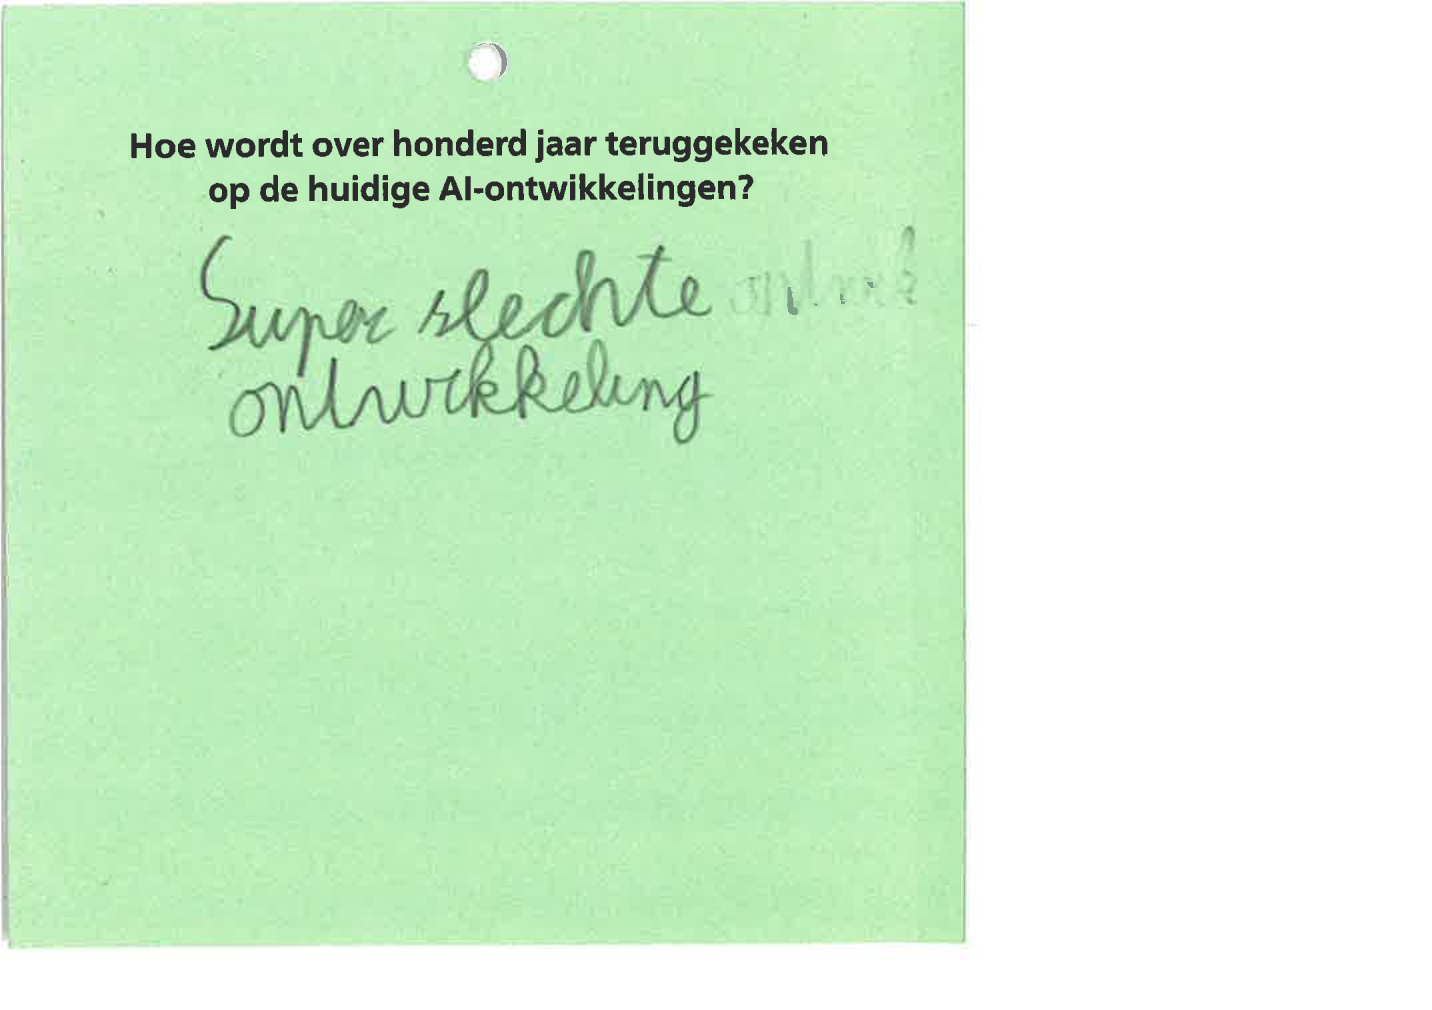 Hoe wordt over honderd jaar teruggekeken
op de huidige AI-ontwikkelingen?
Super slechte
ontwikkeling